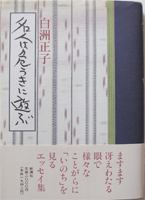 白洲正子
名人は危うきに遊ぶ
ますます
冴えわたる
眼で
様々な
ことがらに
「いのち」を
見る
エッセイ集
新潮社